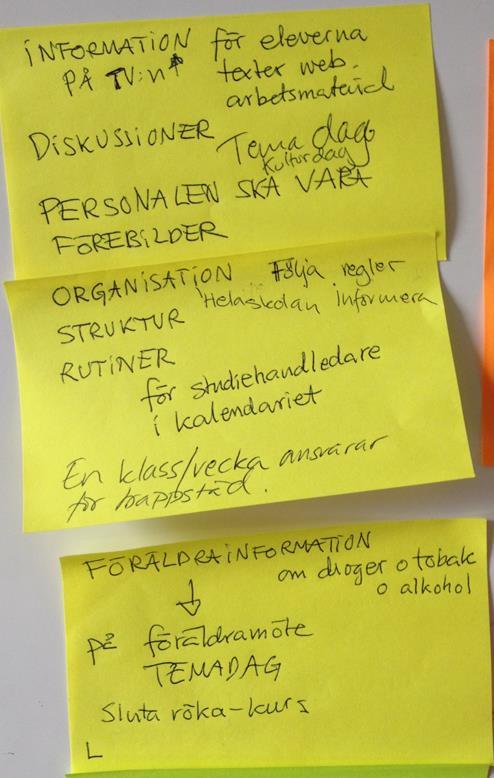 INFORMATION för eleverna
PÅ TV:n texter web.
arbetsmaterial
DISKUSSIONER Tema dag
Kulturdag
PERSONALEN SKA VARA
FÖREBILDER
ORGANISATION Följa regler
STRUKTUR Hela skolan informera
RUTINER
för studiehandledare
i kalendariet
En klass/vecka ansvarar
för trappstäd.
FÖRÄLDRAINFORMATION
om droger o tobak
o alkohol
på föräldramöte
TEMADAG
Sluta röka-kurs
L